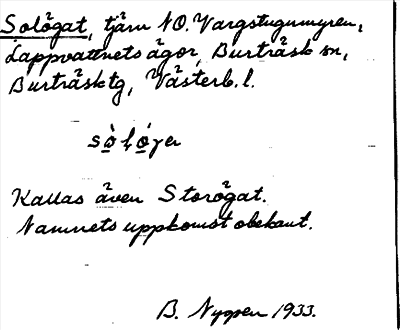 Solögat, tjärn NO. Vargstugumyren,
Lappvattnets ägor, Burträsk sn,
Burträsk tg, Västerb. l.
Kallas även Storögat.
Namnets uppkomst obekant.
B. 1933.